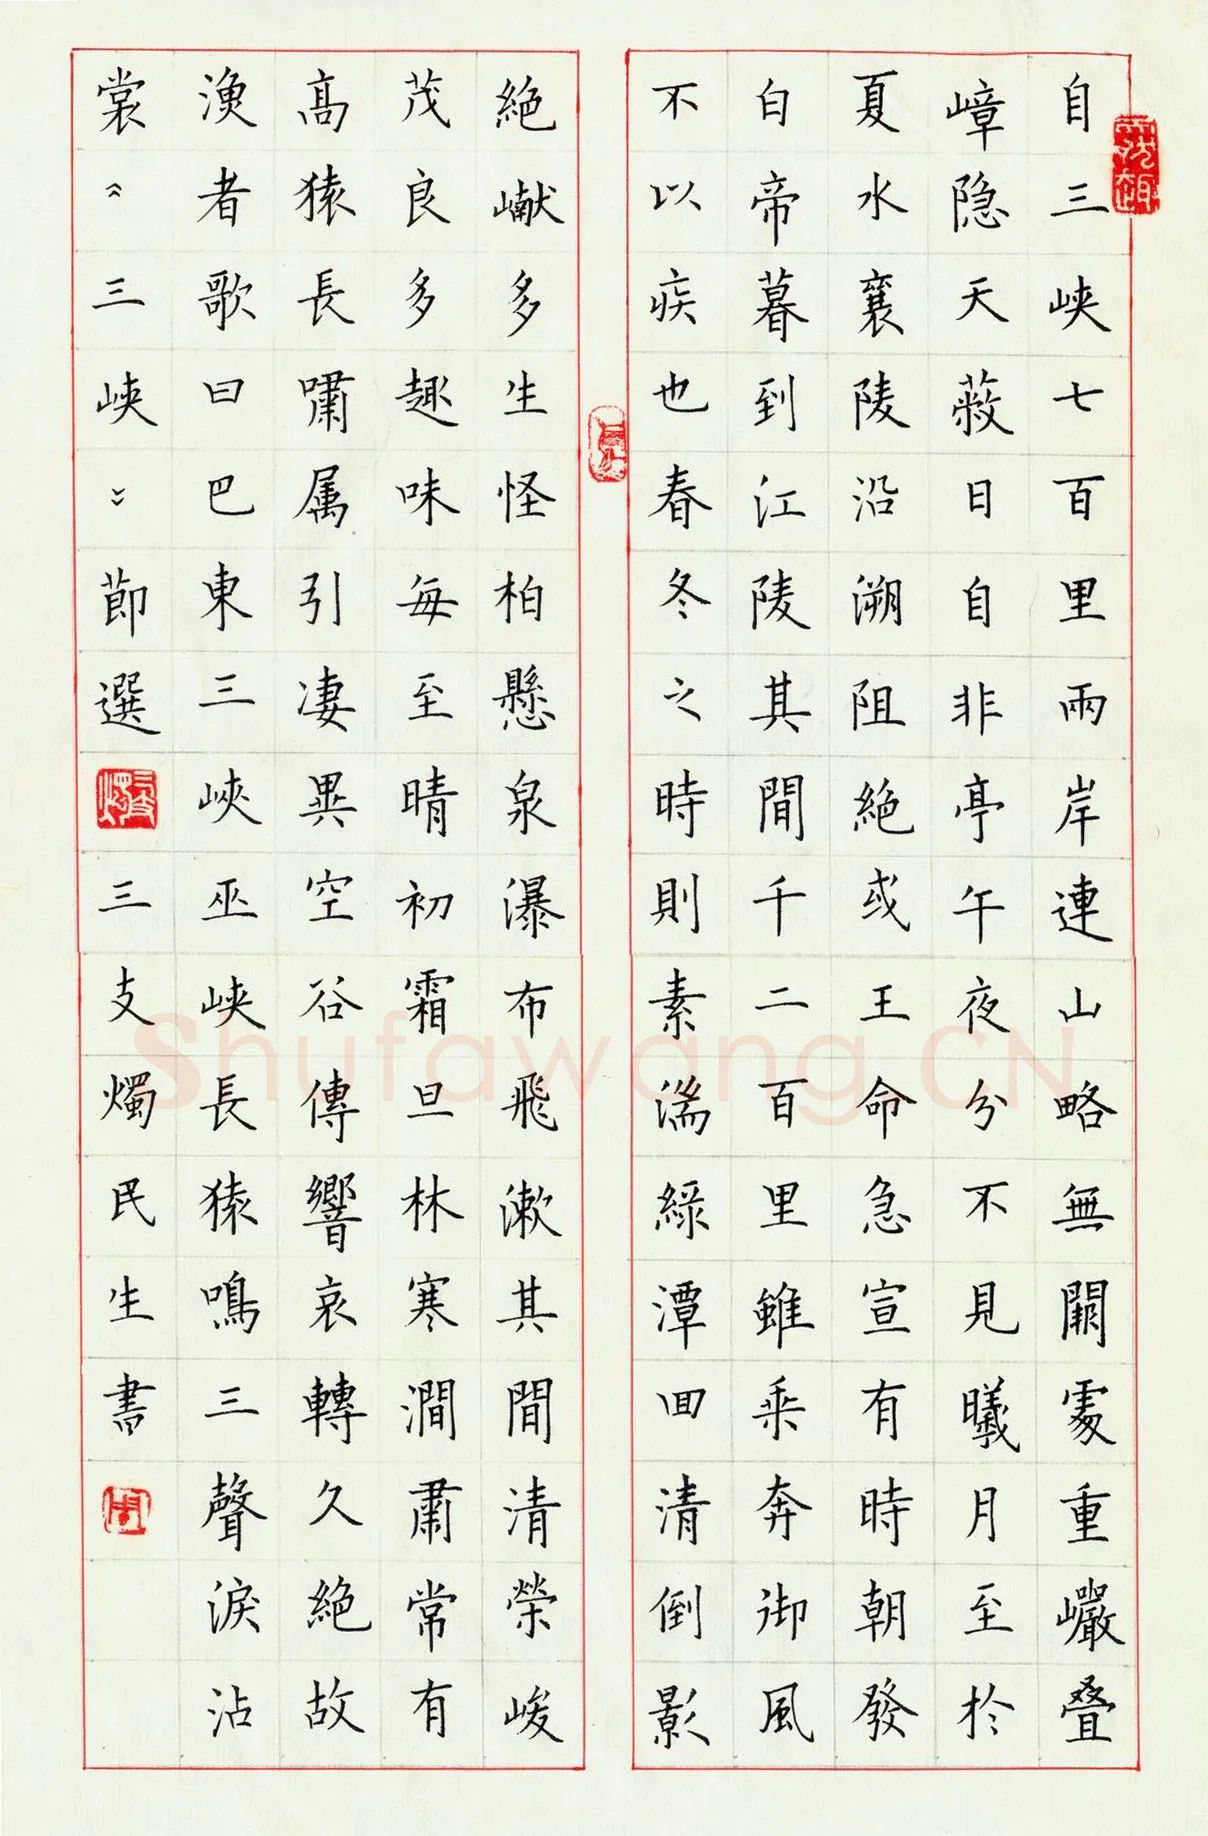 自三峡七百里兩岸連山略無闕處重巖叠
嶂隐天蔽日自非亭午夜分不見曦月至於
夏水襄陵沿溯阻絕或王命急宣有時朝發
白帝暮到江陵其間千二百里雖乘奔御風
不以疾也春冬之時則素湍綠潭回清倒影
絕巘多生怪柏懸泉瀑布飛漱其間清榮峻
茂良多趣味每至晴初霜旦林寒澗肅常有
高猿長嘯属引凄異空谷傳響哀轉久絕故
漁者歌曰巴東三峽巫峡長猿鳴三聲淚沾
裳《三峡》節選三支燭民生書
Shufawang.CN